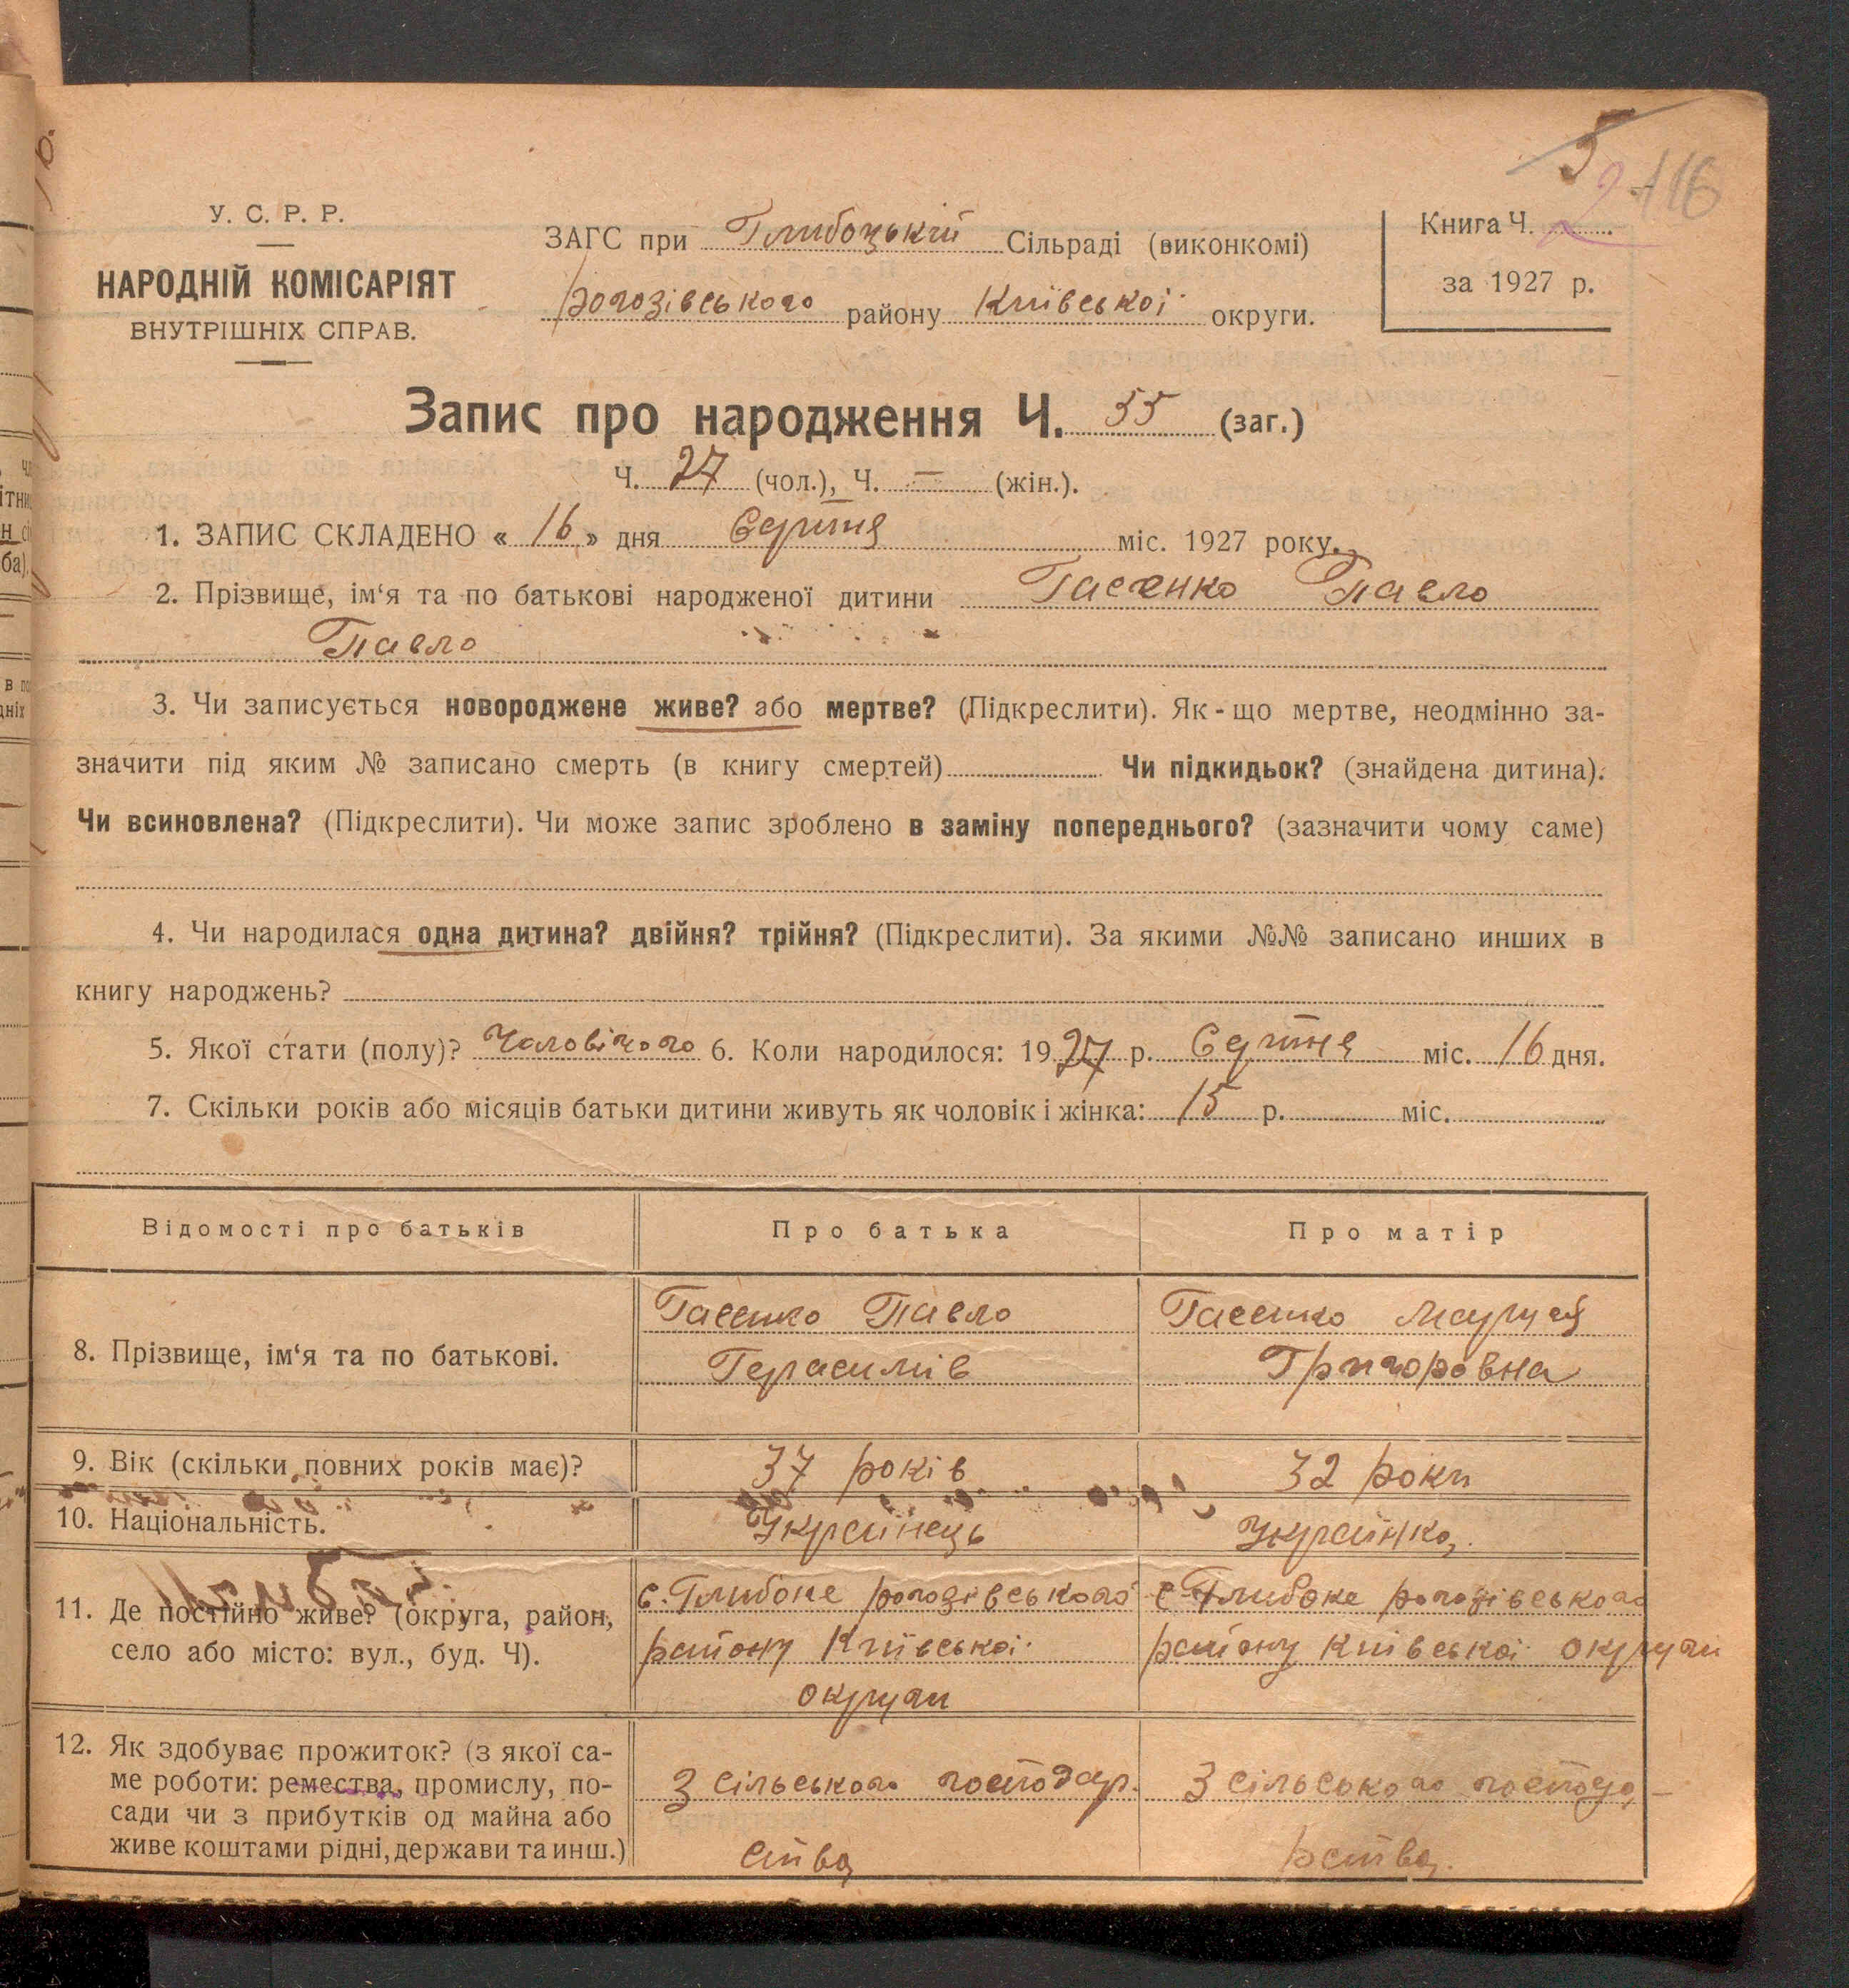 5
2 116
У. С. Р. Р.
НАРОДНІЙ КОМІСАРІЯТ
ВНУТРІШНІХ СПРАВ.
ЗАГС при Глибоцькій Сільраді (виконкомі)
Рогозівського району Київської округи.
Книга Ч. 2
за 1927 р.
Запис про народження Ч. 55 (заг.)
Ч. 27 (чол.), Ч. = (жін.).
1. ЗАПИС СКЛАДЕНО « 16 » дня Серпня міс. 1927 року.
2. Прізвище, ім‘я та по батькові народженої дитини Гасенко Павло
Павло
3. Чи записується новороджене живе? або мертве? (Підкреслити). Як-що мертве, неодмінно за-
значити під яким № записано смерть (в книгу смертей) Чи підкидьок? (знайдена дитина).
Чи всиновлена? (Підкреслити). Чи може запис зроблено в заміну попереднього? (зазначити чому саме)
4. Чи народилася одна дитина? двійня? трійня? (Підкреслити). За якими №№ записано инших в
книгу народжень?
5. Якої стати (полу)? Чоловічого 6. Коли народилося: 1927 р. Серпня міс. 16 дня.
7. Скільки років або місяців батьки дитини живуть як чоловік і жінка: 15 р. міс.
Відомості про батьків Про батька Про матір
8. Прізвище, ім‘я та по батькові.
Гасенко Павло
Герасимів
Гасенко
Григоровна
9. Вік (скільки повних років має)? 37 років 32 роки
10. Національність. Українець Українка
11. Де постійно живе? (округа, район,
село або місто: вул., буд. Ч).
с. Глибоке рогозівського
району Київської
округи
с. Глибоке рогозівського
району Київської округи
12. Як здобуває прожиток? (з якої са-
ме роботи: ремества, промислу, по-
сади чи з прибутків од майна або
живе коштами рідні, держави та инш.)
З сільського господар.
ства
З сільського господа-
рства.